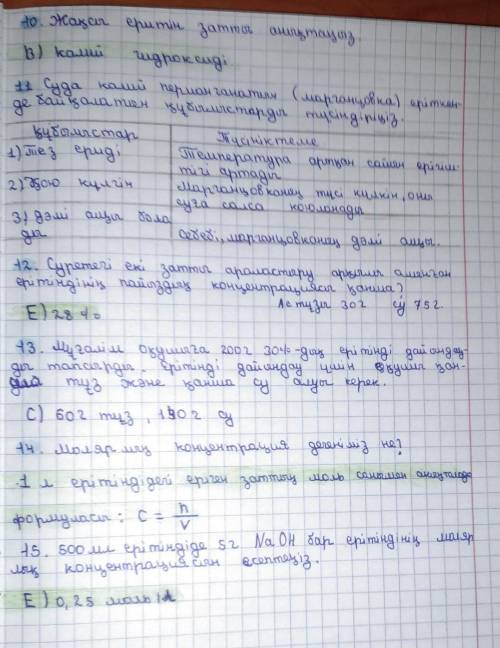 10. Жақсы еритін затты анықтаңыз.
B) калий гидроксиді
11. Суда калий перманганатын (марганцовка) еріткен-
де байқалатын құбылыстарды түсіндіріңіз.
Құбылыстар Түсініктеме
1) Тез ериді Температура артқан сайын ерігіш-
тігі артады
2) Қою күлгін Марганцовканың түсі күлкін, оны
суға салса коюланады
3) дәмі ащы бола
ды Себебі, марганцовканың дәмі ащы.
12. Суретегі екі затты араластыру арқылы алынған
ерітіндінің пайыздық концентрациясы қанша?
Ас тұзы 30г су 75г.
E) 28%
13. Мұғалім оқушыға 200г 30%-дық ерітінді дайындау-
ды тапсырды. Ерітінді дайындау үшін оқушы қан-
ша тұз және қанша су алуы керек.
C) 60г тұз, 140г су
14. Молярлық концентрация дегеніміз не?
-1 л ерітіндідегі еріген заттың моль санымен анықталады
формуласы: C = n/V
15. 500мл ерітіндіде 5г NaOH бар ерітіндінің моляр
лық концентрациясын есептеңіз.
E) 0,25 моль/л